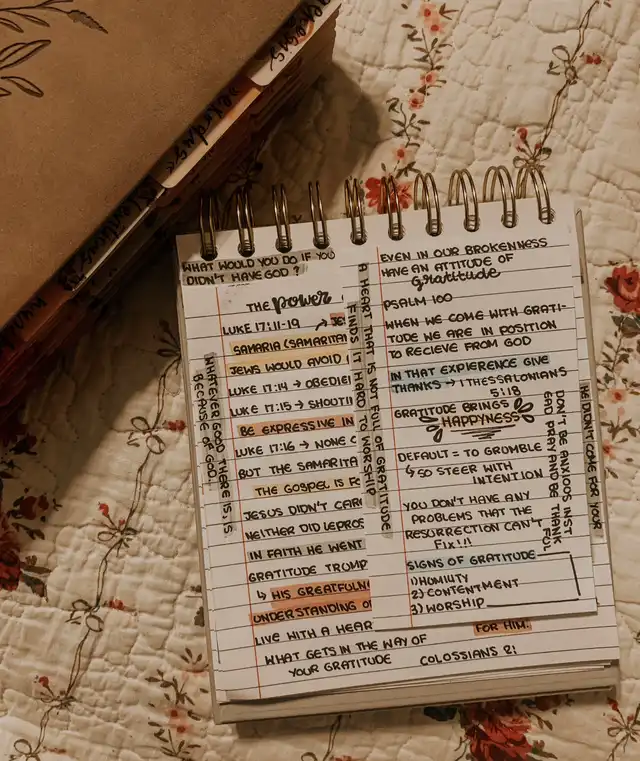 WHAT WOULD YOU DO IF YOU
DIDN'T HAVE GOD?
THE power
LUKE 17:11-19
SAMARIA (SAMARITA
JEWS WOULD AVOID
LUKE 17:14 → OBEDIE
LUKE 17:15 → SHOUTI
BE EXPRESSIVE IN
LUKE 17:16 → NONE
BUT THE SAMARITA
THE GOSPEL IS
JESUS DIDN'T CAR
NEITHER DID LEPROS
IN FAITH HE WENT
GRATITUDE TRUMP
↳ HIS GREATFULN
UNDERSTANDING O
LIVE WITH A HEAR
FOR HIM.
WHAT GETS IN THE WAY OF
YOUR GRATITUDE COLOSSIANS 2:
WHATEVER GOOD THERE IS, IS
BECAUSE OF GOD.
A HEART THAT IS NOT FULL OF GRATITUDE
FINDS IT HARD TO WORSHIP
EVEN IN OUR BROKENNESS
HAVE AN ATTITUDE OF
Gratitude
PSALM 100
WHEN WE COME WITH GRATI-
TUDE WE ARE IN POSITION
TO RECIEVE FROM GOD
IN THAT EXPIERENCE GIVE
THANKS → 1 THESSALONIANS
5:18
GRATITUDE BRINGS
HAPPYNESS
DEFAULT = TO GRUMBLE
↳ SO STEER WITH
INTENTION
YOU DON'T HAVE ANY
PROBLEMS THAT THE
RESURRECTION CAN'T
FIX!!!
SIGNS OF GRATITUDE
1) HOMIUTY
2) CONTENTMENT
3) WORSHIP
DON'T BE ANXIOUS INST
EAD PRAY AND BE THANK
FUL
HE DIDN'T COME FOR YOUR